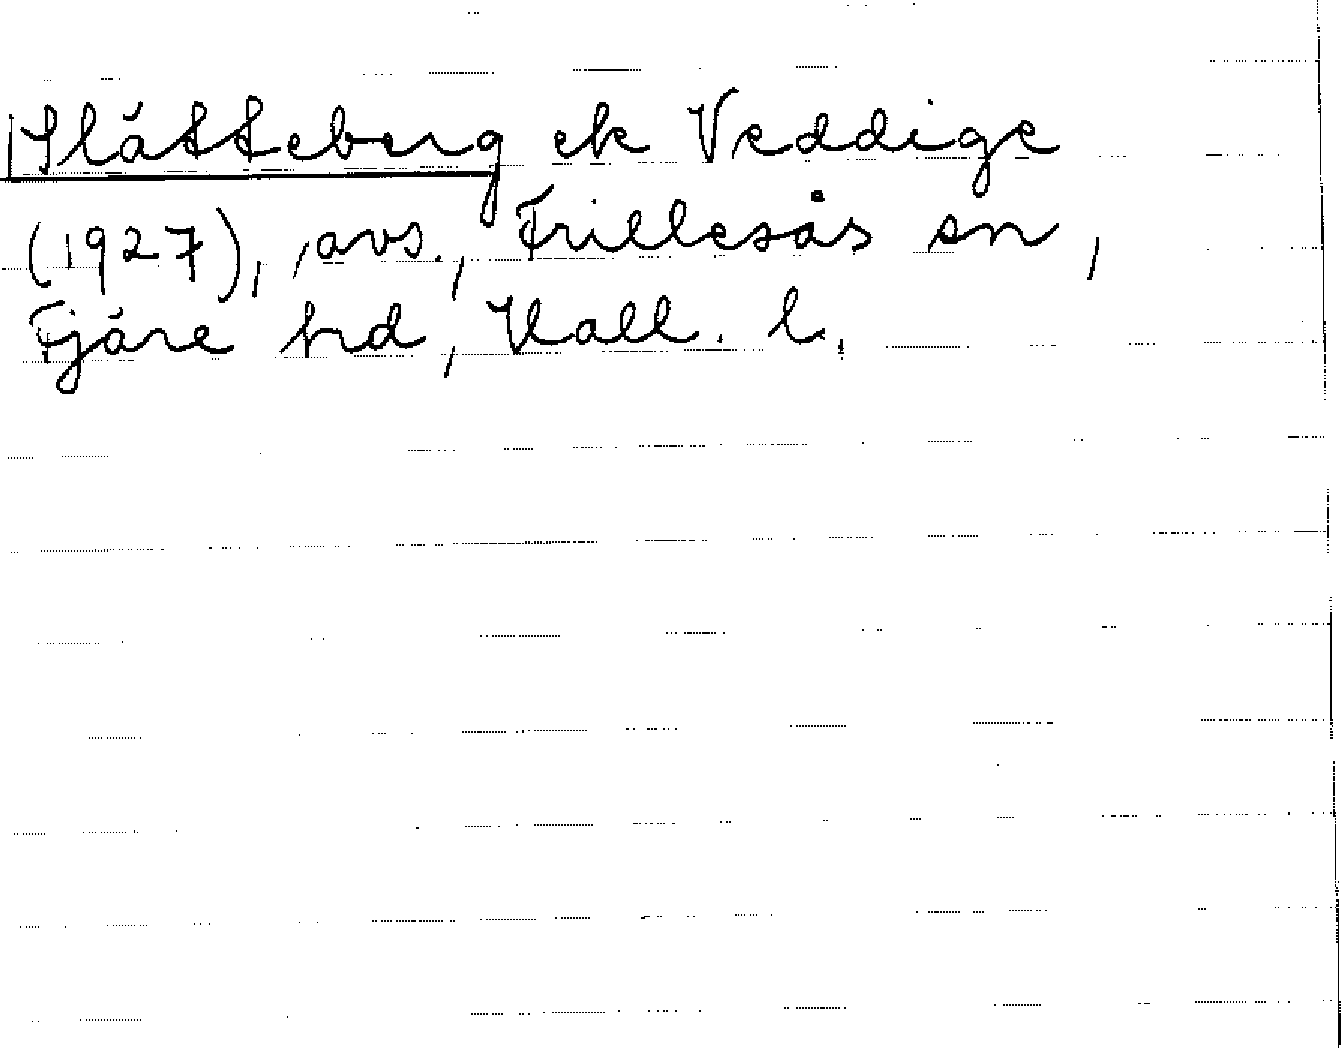 Slätteberg ek Veddige
(1927), avs., Frillesås sn,
Fjäre hd, Hall. l.